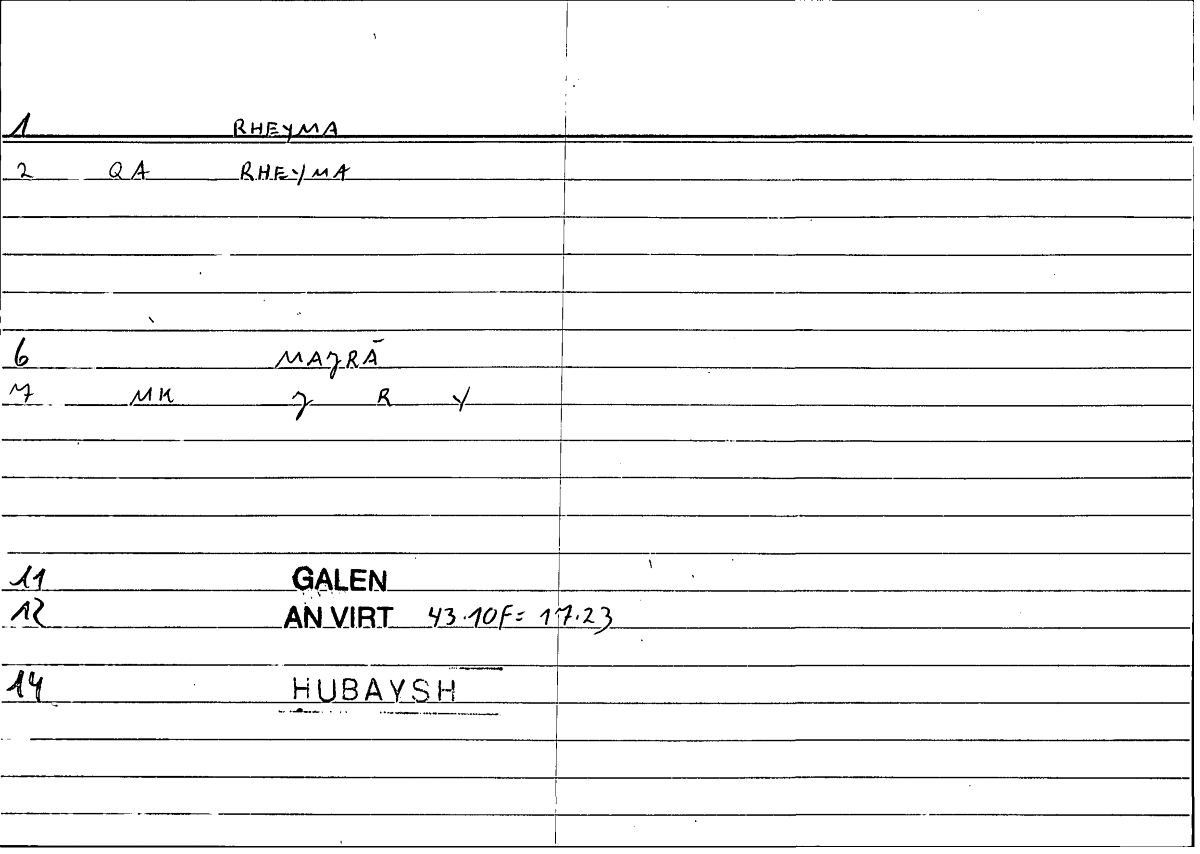 1 RHEYMA
2 QA RHEYMA
6 MAJRĀ
7 MK J R Y
11 GALEN
12 AN VIRT 43.10F= 17.23
14 HUBAYSH